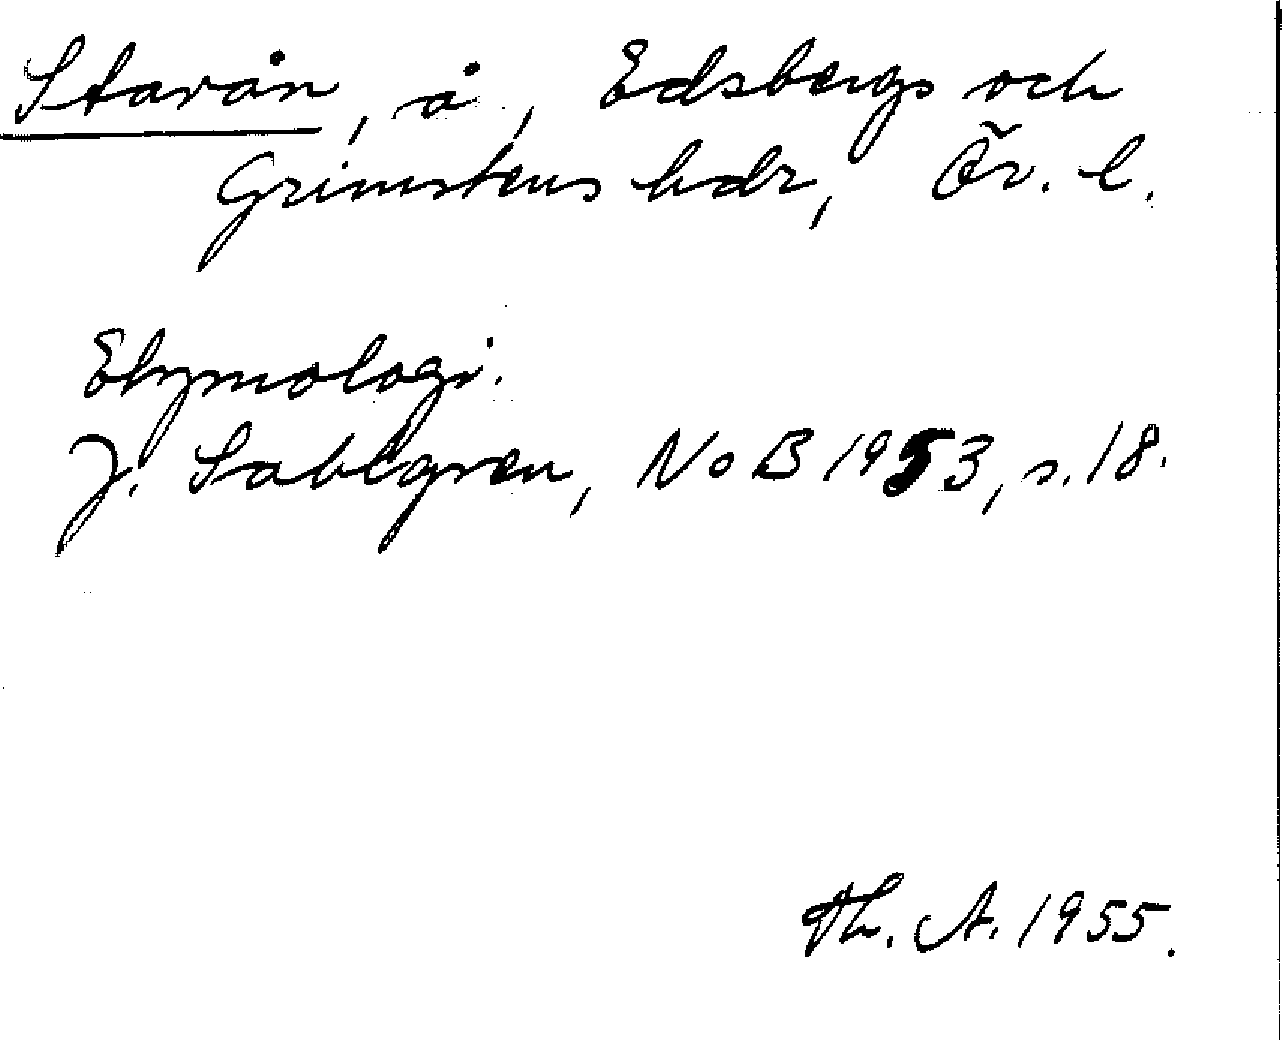 Stavån, å, Edsbergs och
Grimstens hdr, Ör. l.
Etymologi.
J. Sahlgren, NoB 1953, s. 18.
Th. A. 1955.